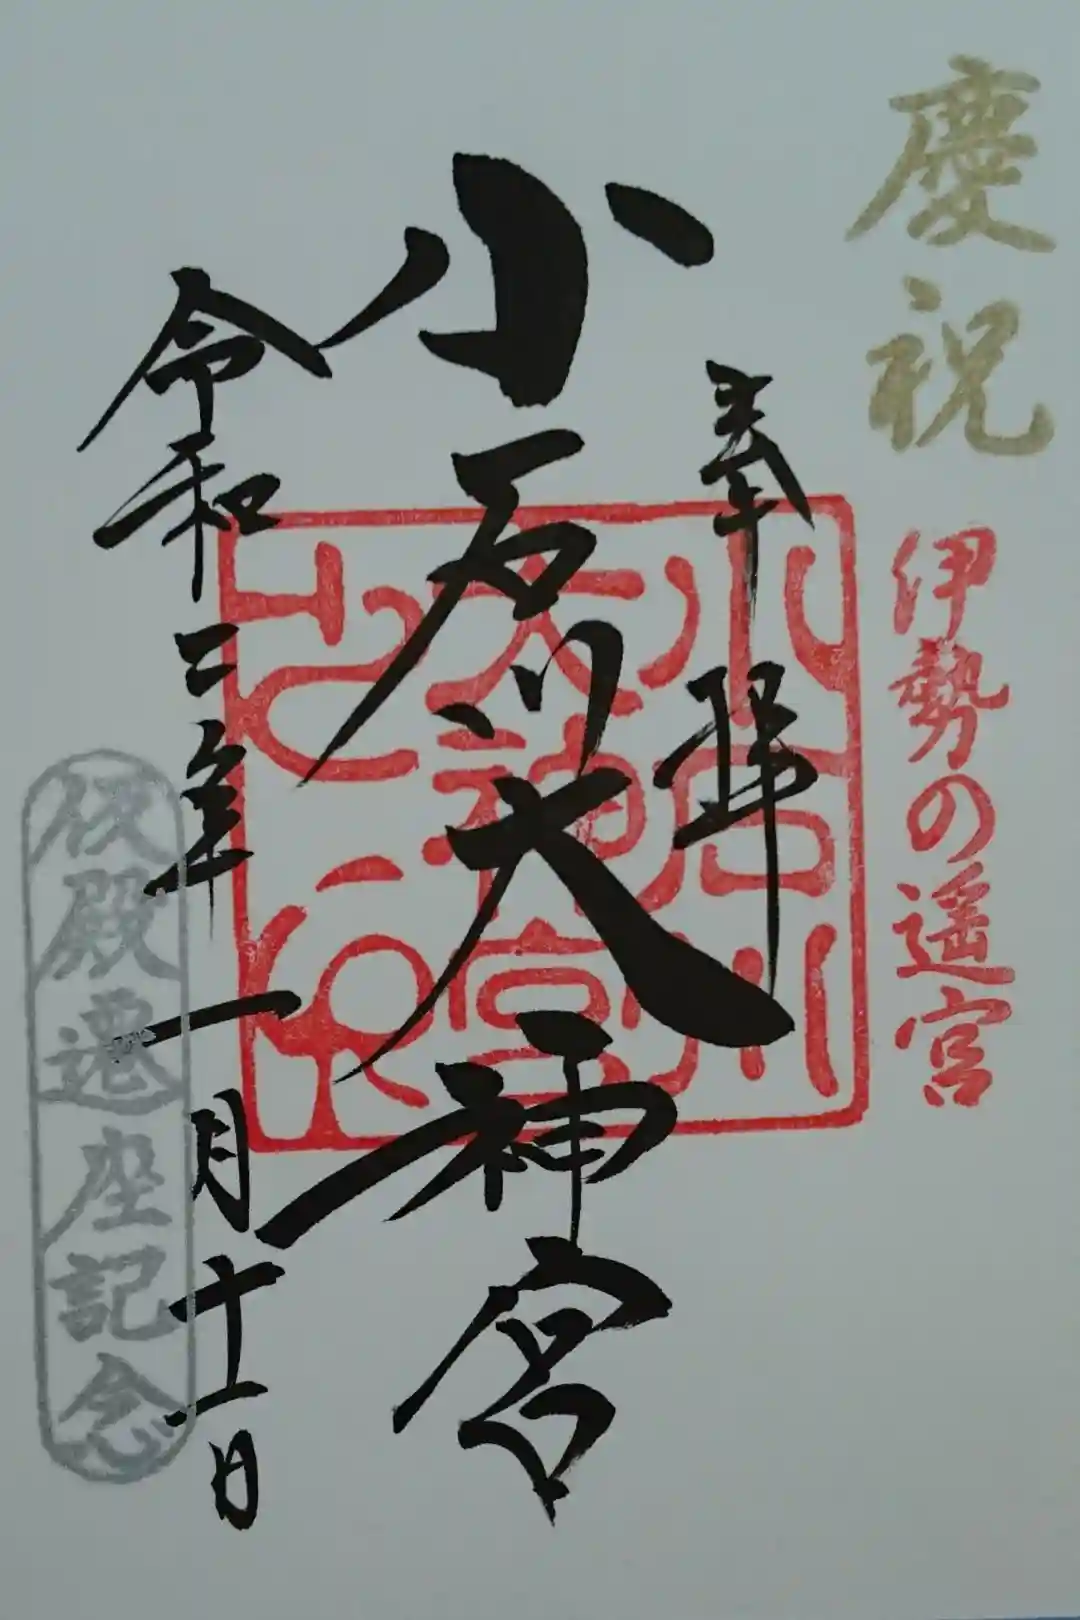 慶祝
伊勢の遥宮
奉拝
小石川大神宮
小石川
大神宮
令和二年一月十一日
仮殿遷座記念